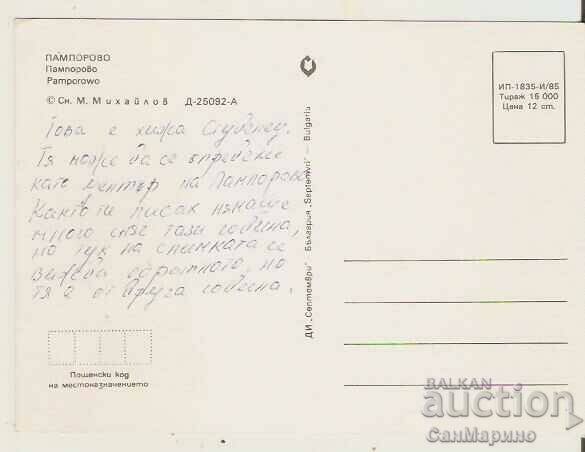 ПАМПОРОВО
Пампорово
Pamporowo
© Сн. М. Михайлов Д-25092-А
Това е хижа Студенец.
Тя може да се определи
като център на Пампорово
Както ти писах нямаше
много сняг тази година,
но тук на снимката се
вижда обратното, но
тя е от друга година.
Пощенски код
на местоназначението
ДИ „Септември" – България „Septemvri" – Bulgaria
ИП-1835-И/85
Тираж 15 000
Цена 12 ст.
BALKAN
auction
СанМарино